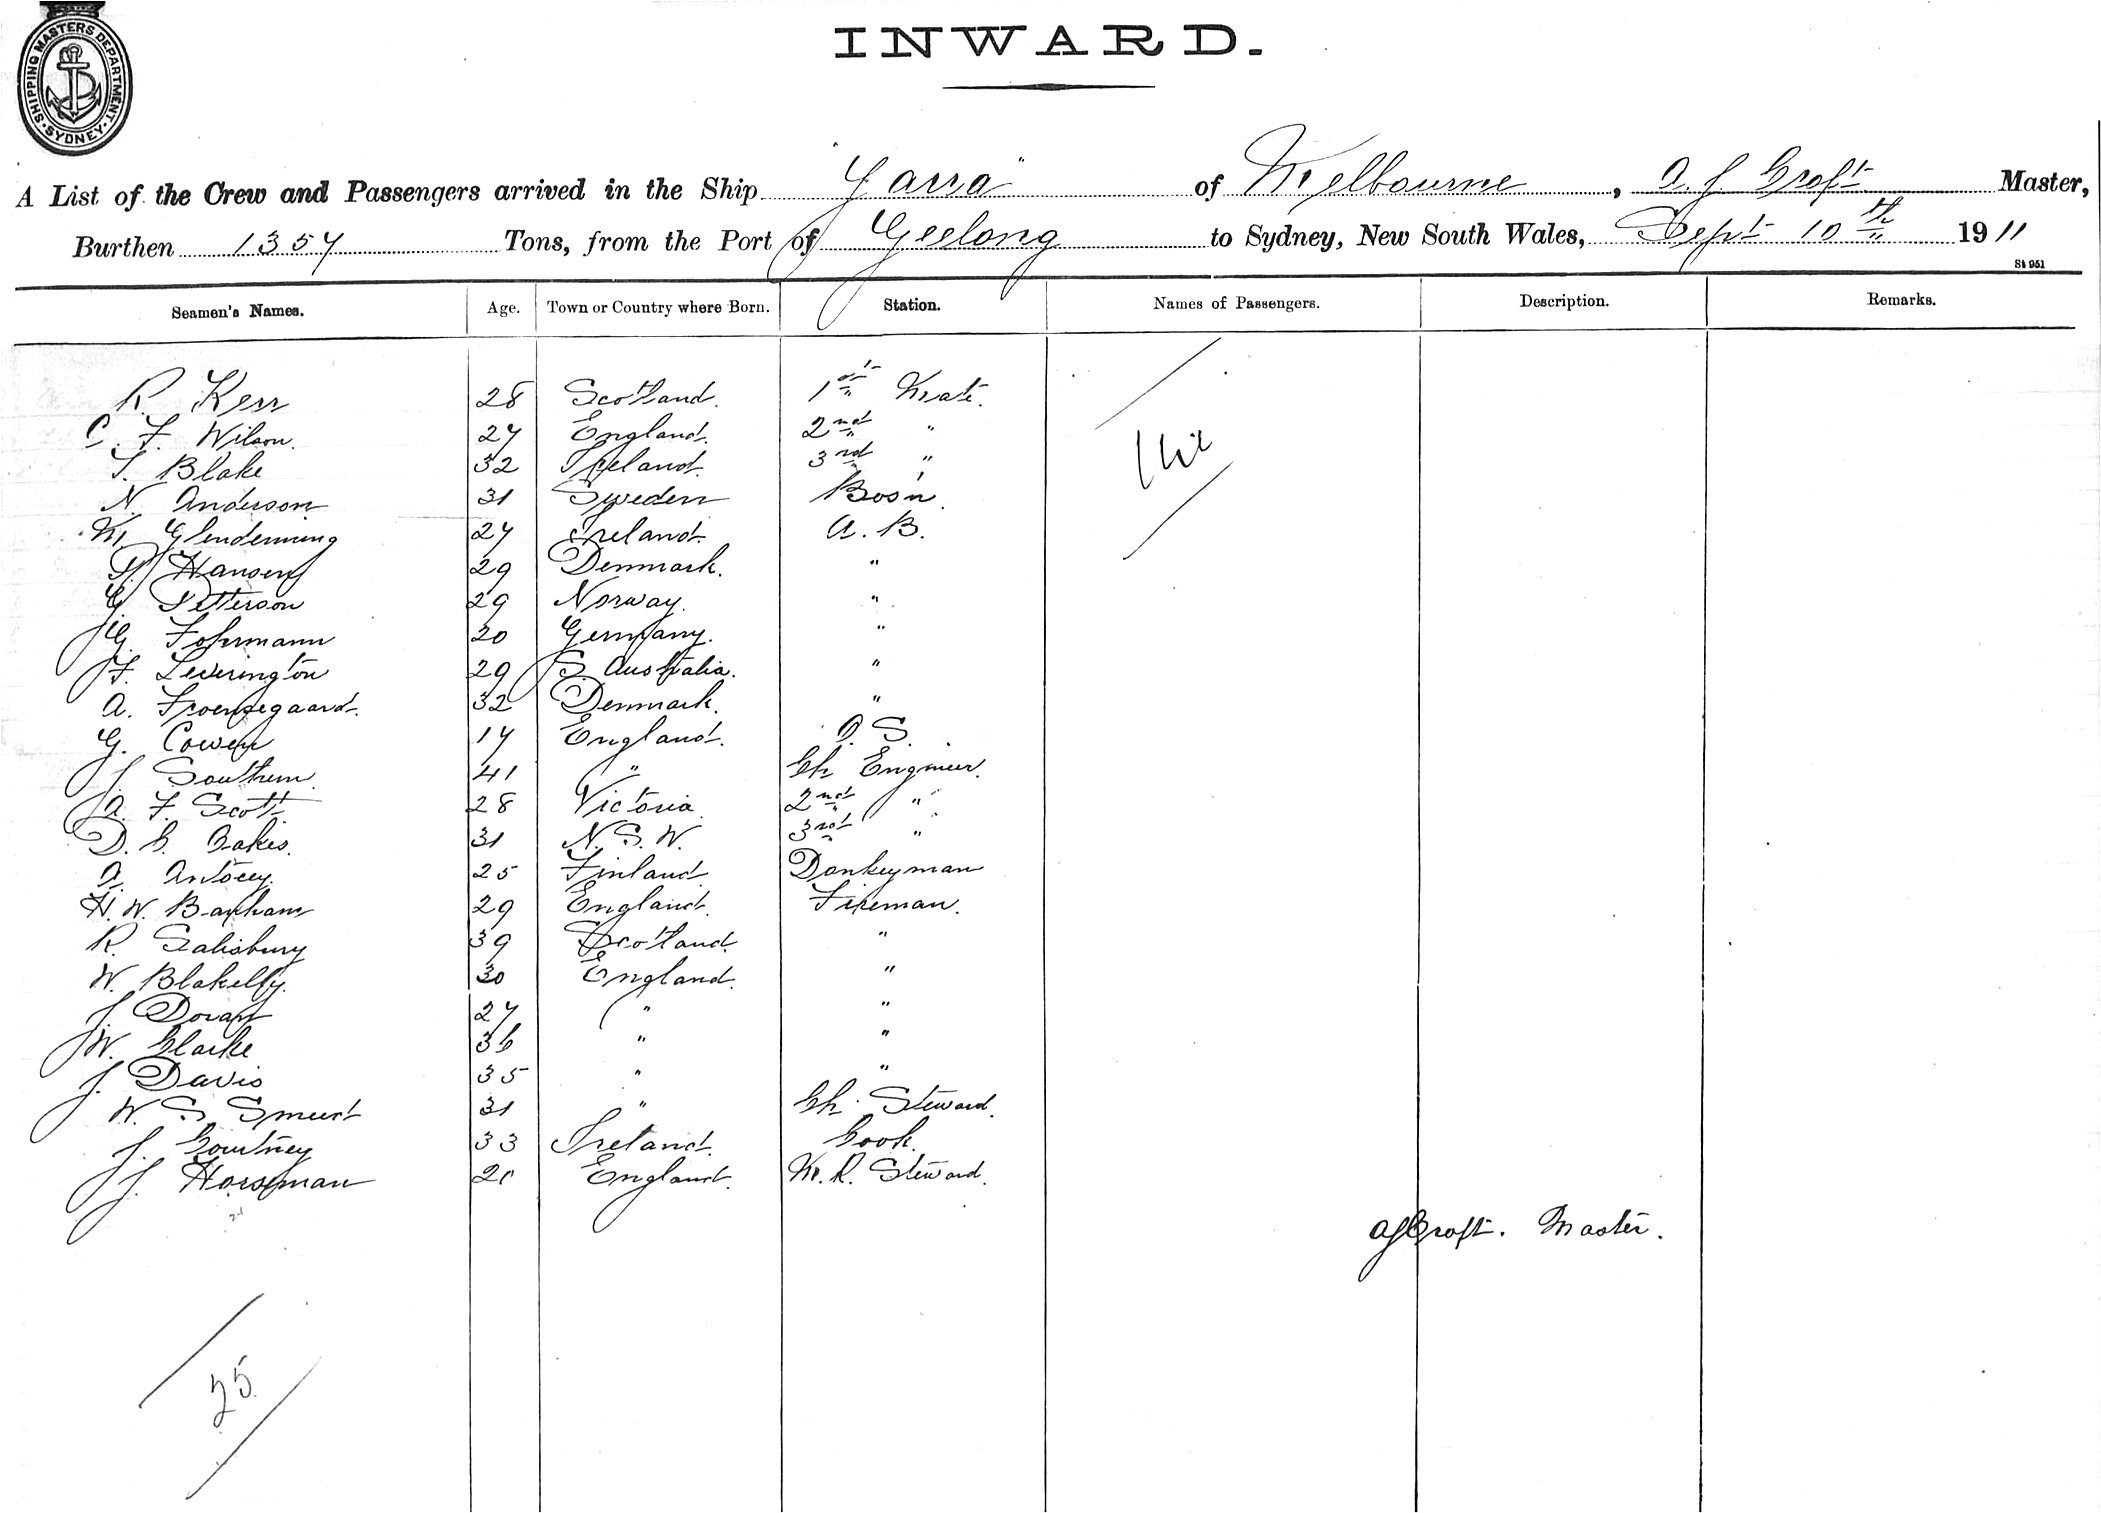 SHIPPING MASTERS DEPARTMENT. SYDNEY.
INWARD.
A List of the Crew and Passengers arrived in the Ship "Yarra" of Melbourne, A J Croft Master,
Burthen 1357 Tons, from the Port of Geelong to Sydney, New South Wales, Sept 10th 1911
St 951
Seamen's Names. Age. Town or Country where Born. Station. Names of Passengers. Description. Remarks.
R. Kerr 28 Scotland. 1st Mate.
C. F. Wilson. 27 England. 2nd "
T. Blake 32 Ireland. 3rd "
Nil
N. Anderson 31 Sweden Bos'n
M. Glendenning 27 Ireland. A. B.
P. Hansen 29 Denmark. "
C. Petterson 29 Norway. "
G. Fohrmann 20 Germany. "
F. Leverington 29 S. Australia. "
A. 32 Denmark. "
G. Cowen 17 England. O. S.
J. Southern 41 " Ch Engineer.
A. F. Scott 28 Victoria 2nd "
D. C. Oakes. 31 N. S. W. 3rd "
A. 25 Finland Donkeyman
H. W. Barham 29 England. Fireman.
R. Salisbury 39 Scotland. "
W. Blakelly. 30 England. "
J. Doran 27 " "
W. Clarke 36 " "
J. Davis 35 " "
W. S. 31 " Ch. Steward.
J. Courtney 33 Ireland. Cook.
J. Horseman England. M. R. Steward.
24
AJCroft. Master.
25